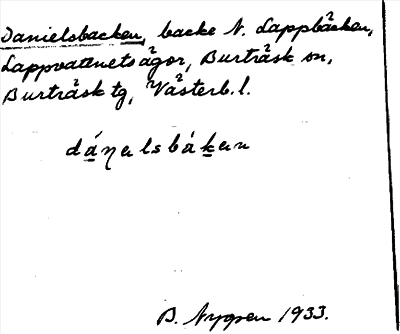 Danielsbacken, backe N. Lappbäcken,
Lappvattnets ägor, Burträsk sn,
Burträsk tg, Västerb. l.
dáŋalsbákan
B. Nygren 1933.